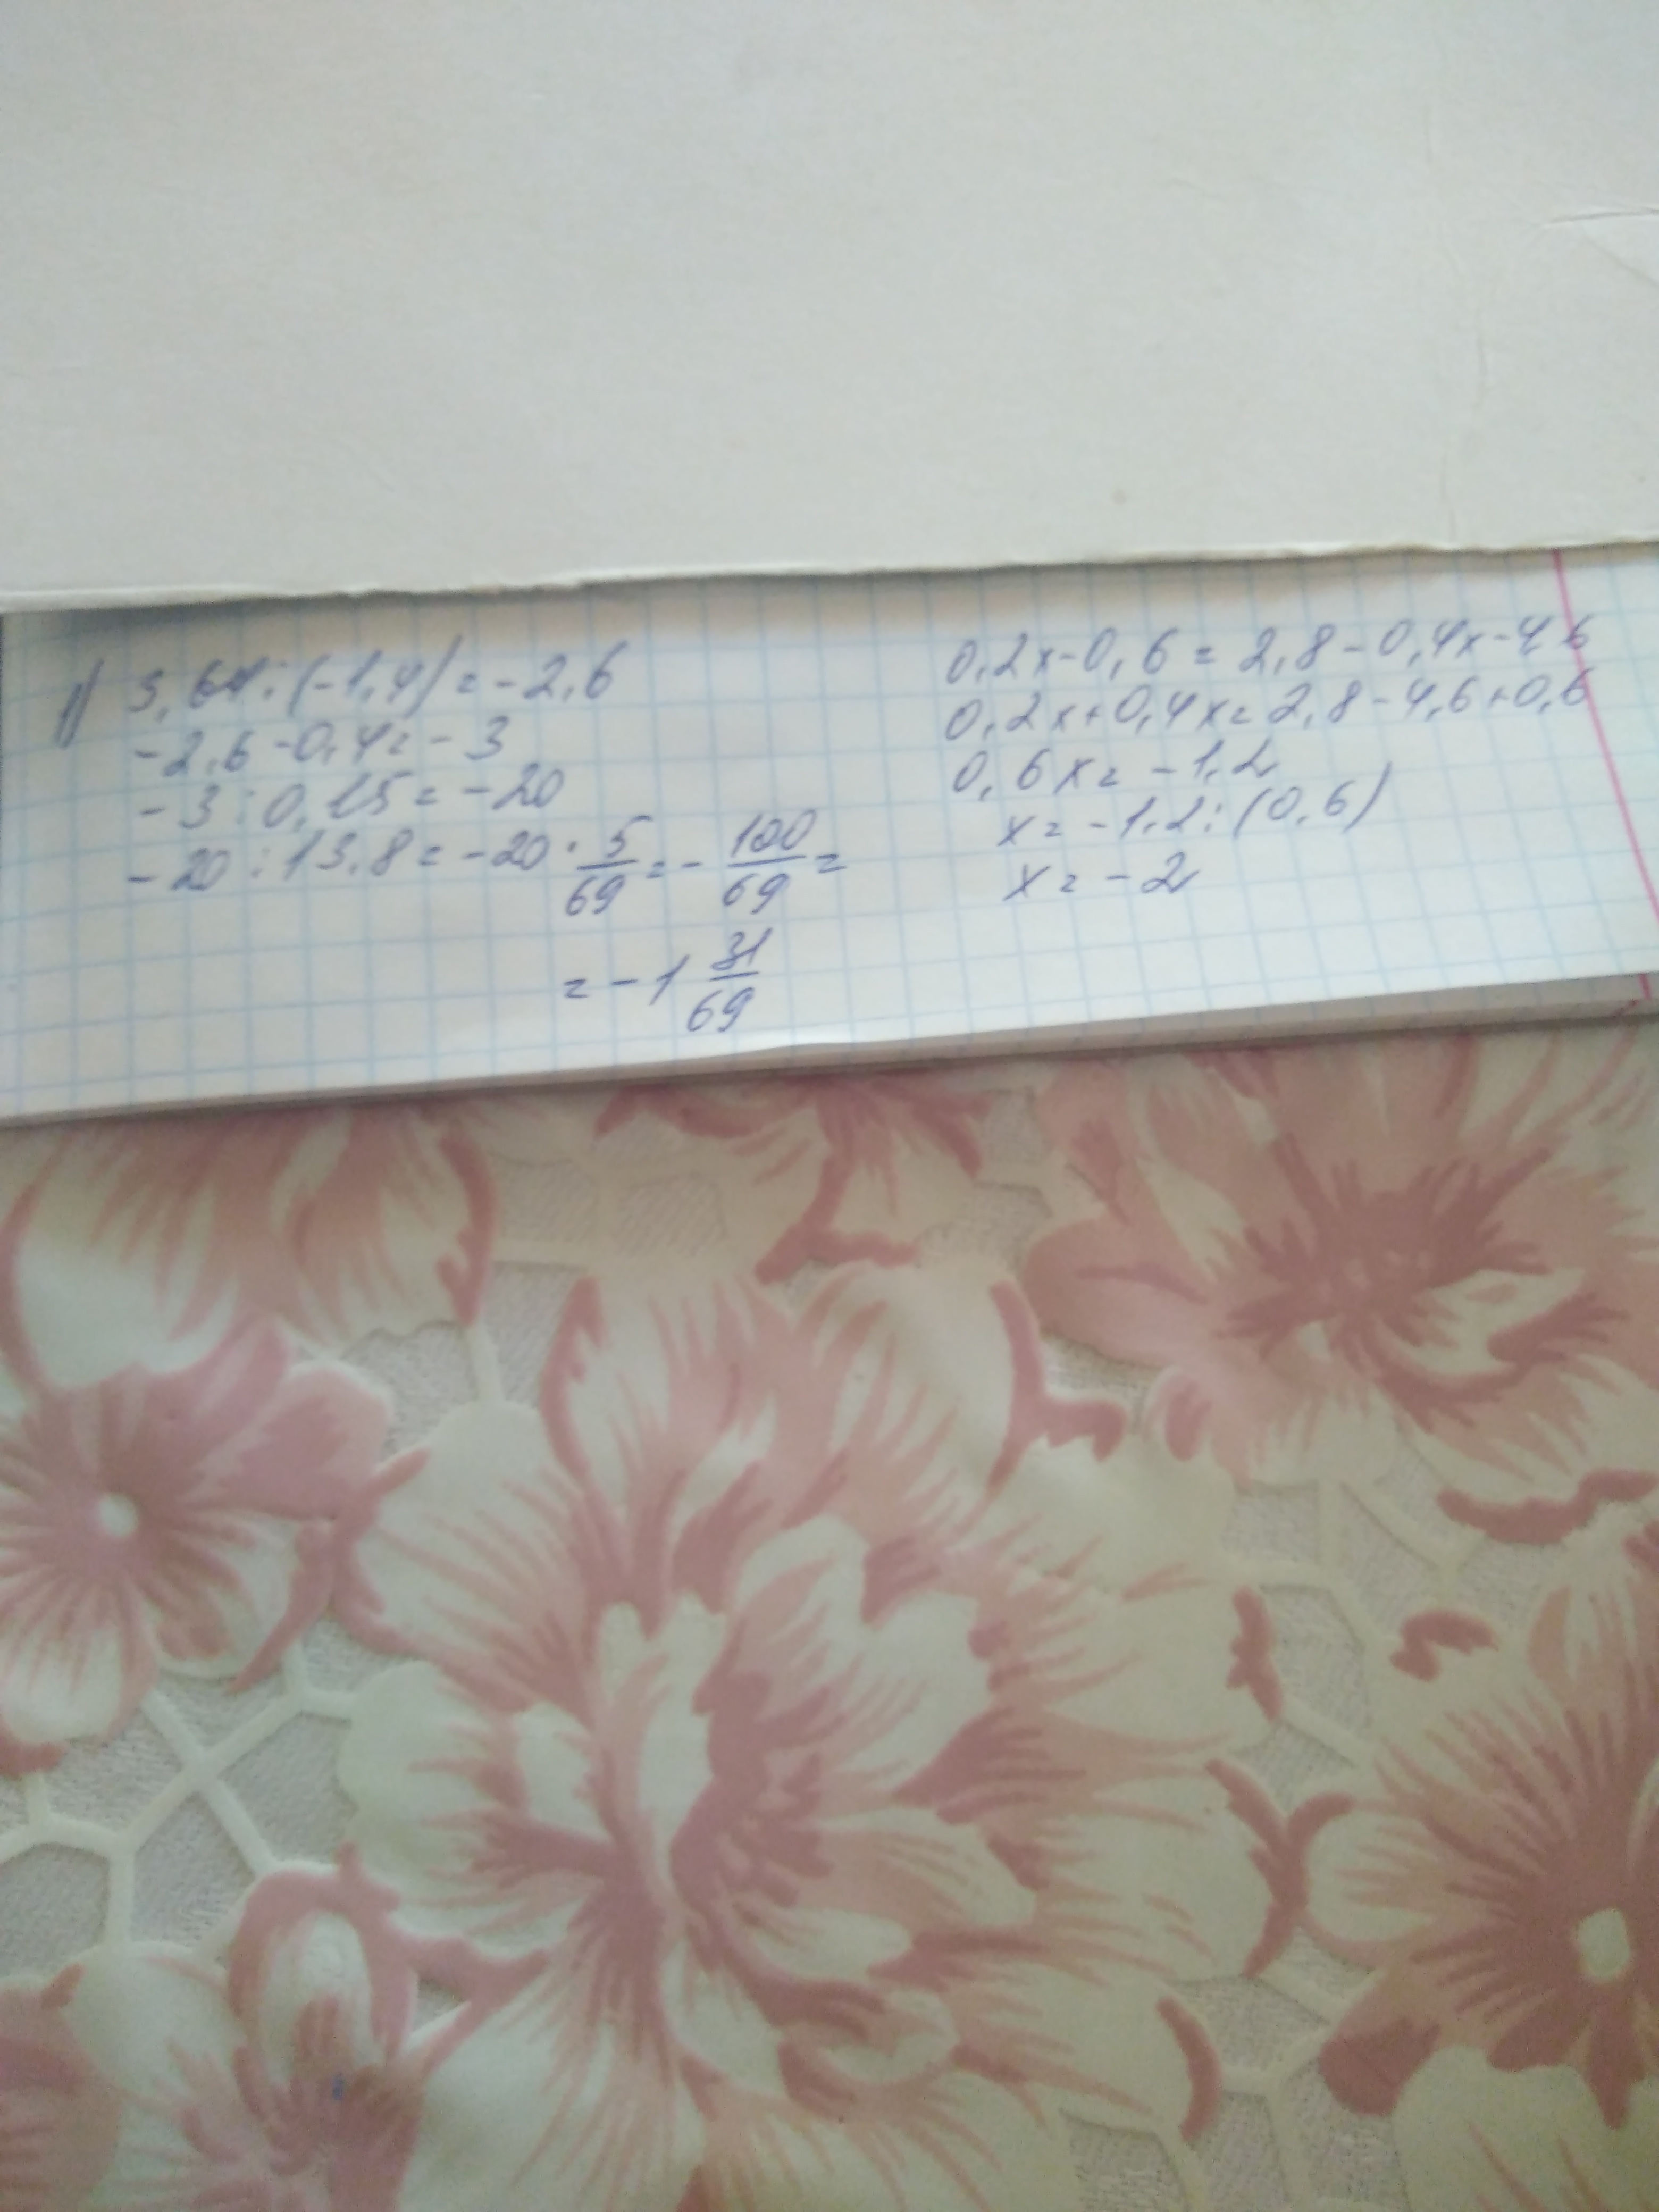 1) 3,64:(-1,4)=-2,6
-2,6-0,4=-3
-3:0,15=-20
-20:13,8=-20·5/69=-100/69=
=-1 31/69
0,2x-0,6=2,8-0,4x-4,6
0,2x+0,4x=2,8-4,6+0,6
0,6x=-1,2
x=-1,2:(0,6)
x=-2